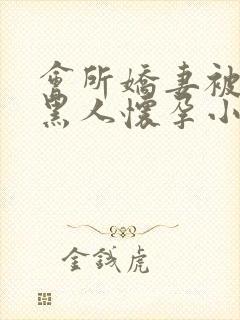 會所嬌妻被
黑人懷孕小
金錢虎